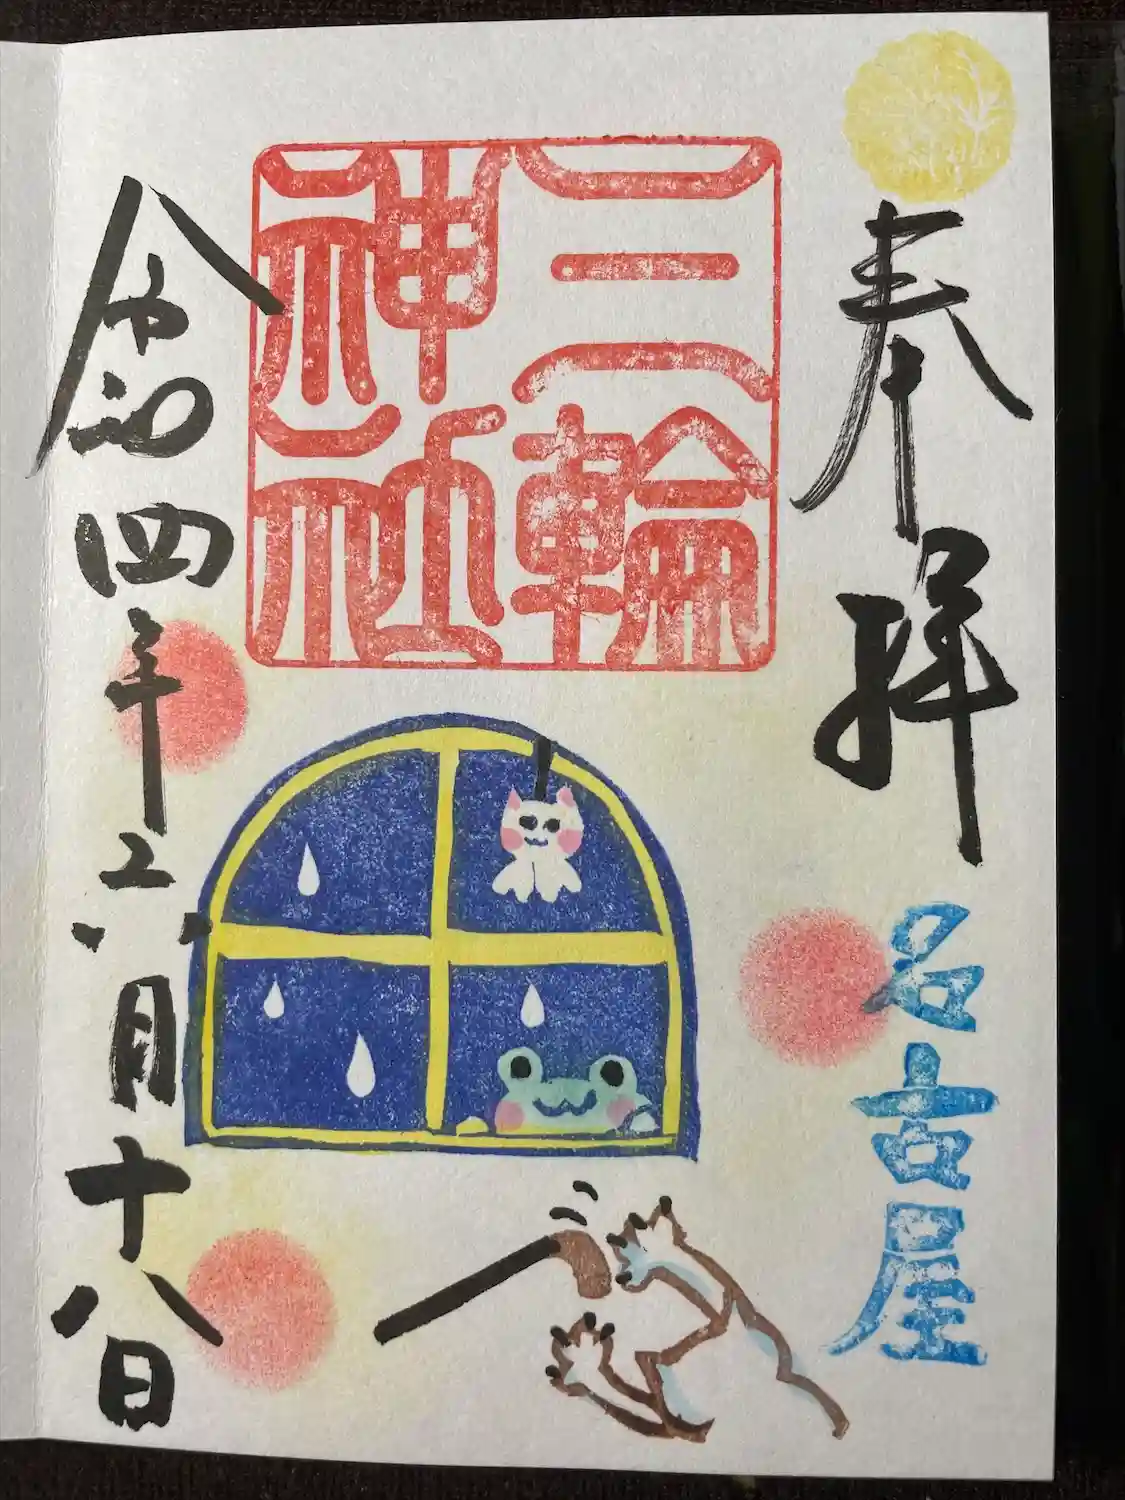 奉拝
名古屋
三輪
神社
令和四年六月十八日